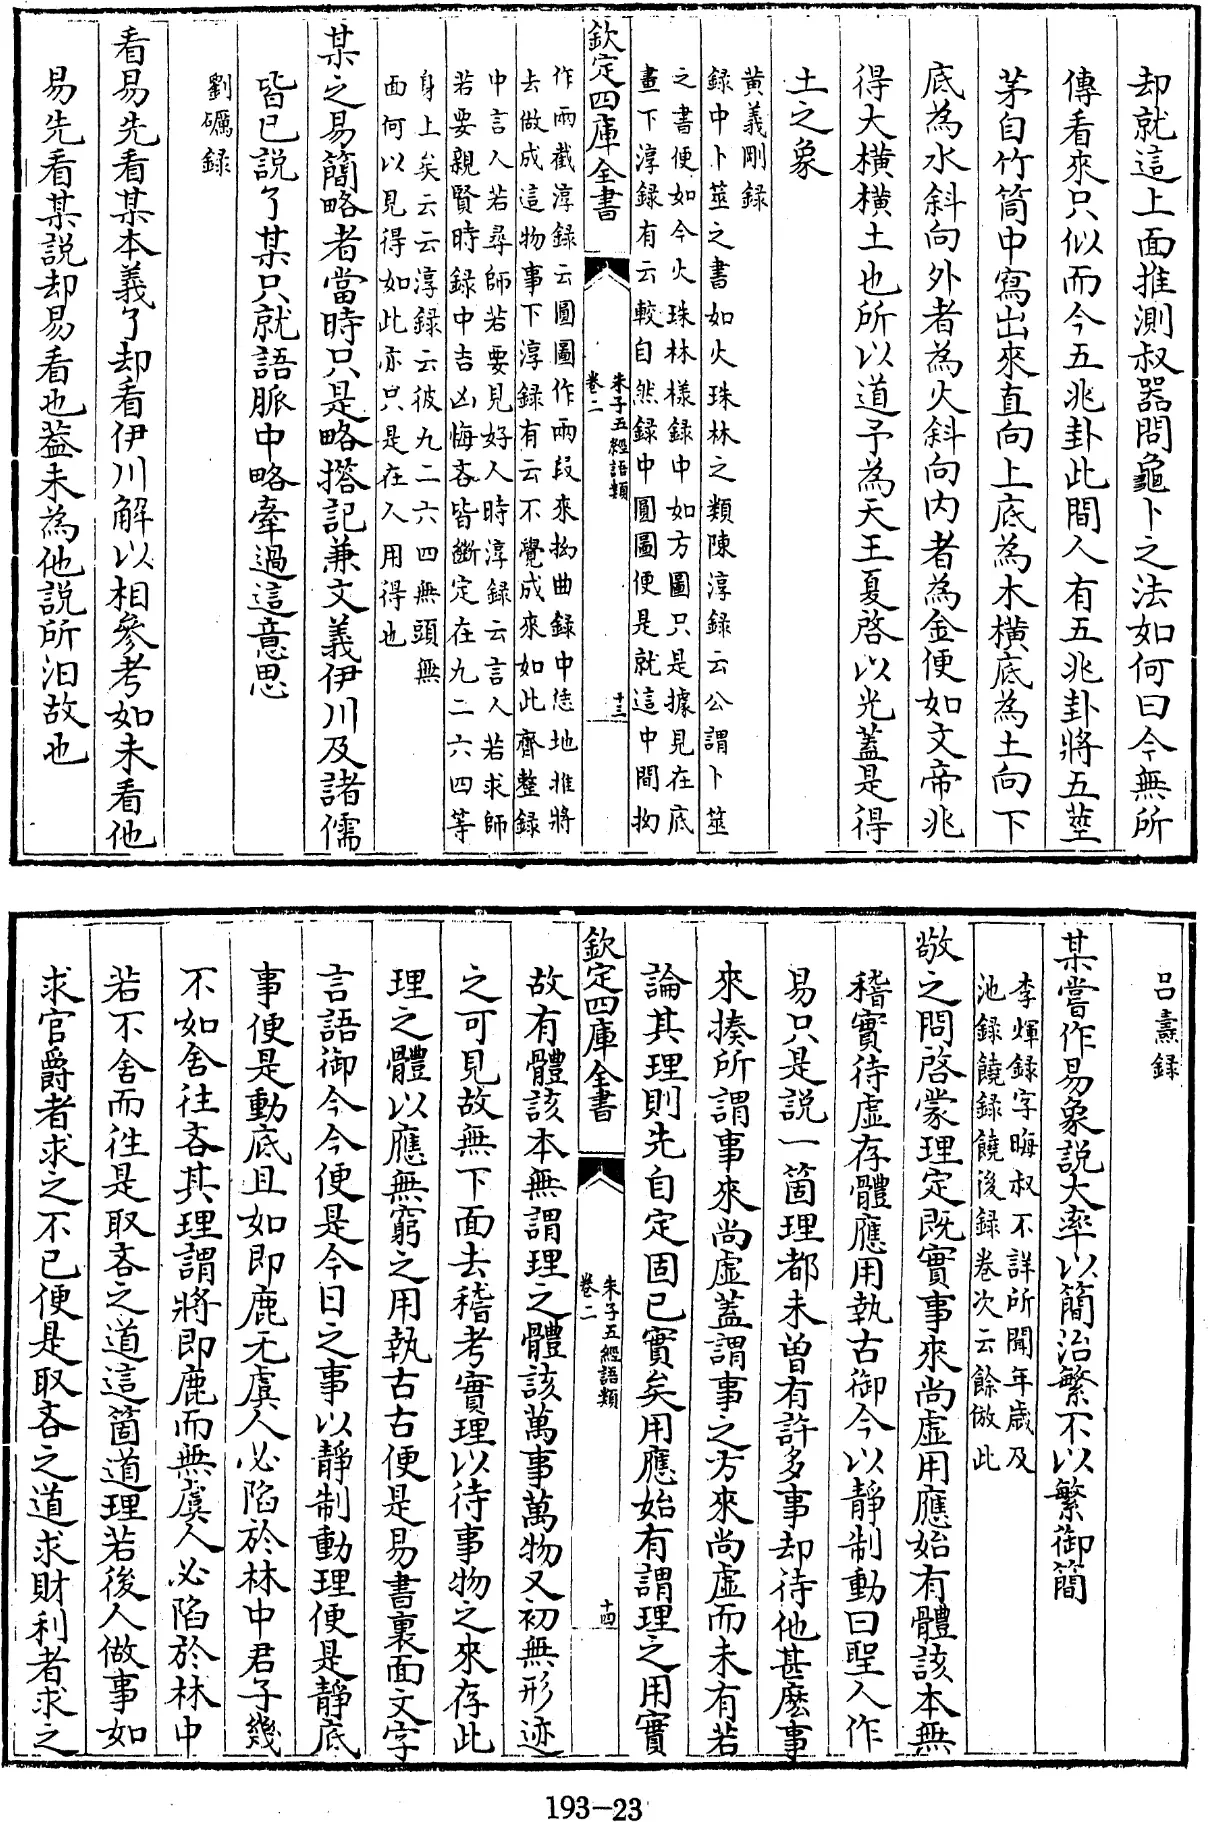 却就這上面推測叔器問龜卜之法如何曰今無所
傳看來只似而今五兆卦此間人有五兆卦將五莖
茅自竹筒中寫出來直向上底為木橫底為土向下
底為水斜向外者為火斜向内者為金便如文帝兆
得大橫橫土也所以道予為天王夏啓以光蓋是得
土之象
黃義剛録
録中卜筮之書如火珠林之類陳淳録云公謂卜筮
之書便如今火珠林樣録中如方圖只是據見在底
畫下淳録有云較自然録中圓圖便是就這中間拗
欽定四庫全書
朱子五經語類
卷二
十三
作兩截淳録云圓圖作兩段來拗曲録中恁地推將
去做成這物事下淳録有云不覺成來如此齊整録
中言人若尋師若要見好人時淳録云言人若求師
若要親賢時録中吉凶悔吝皆斷定在九二六四等
身上矣云云淳録云彼九二六四無頭無
面何以見得如此亦只是在人用得也
某之易簡略者當時只是略搭記兼文義伊川及諸儒
皆已說了某只就語脈中略牽過這意思
劉礪録
看易先看某本義了却看伊川解以相參考如未看他
易先看某說却易看也葢未為他說所汩故也
吕燾録
某嘗作易象說大率以簡治繁不以繁御簡
李煇録字晦叔不詳所聞年歲及
池録饒録饒後録卷次云餘倣此
敬之問啓蒙理定既實事來尚虛用應始有體該本無
稽實待虛存體應用執古御今以靜制動曰聖人作
易只是說一箇理都未曾有許多事却待他甚麽事
來揍所謂事來尚虛蓋謂事之方來尚虛而未有若
論其理則先自定固已實矣用應始有謂理之用實
欽定四庫全書
朱子五經語類
卷二
十四
故有體該本無謂理之體該萬事萬物又初無形迹
之可見故無下面去稽考實理以待事物之來存此
理之體以應無窮之用執古古便是易書裏面文字
言語御今今便是今日之事以靜制動理便是靜底
事便是動底且如即鹿无虞人必陷於林中君子幾
不如舍往吝其理謂將即鹿而無虞人必陷於林中
若不舍而往是取吝之道這箇道理若後人做事如
求官爵者求之不已便是取吝之道求財利者求之
193-23